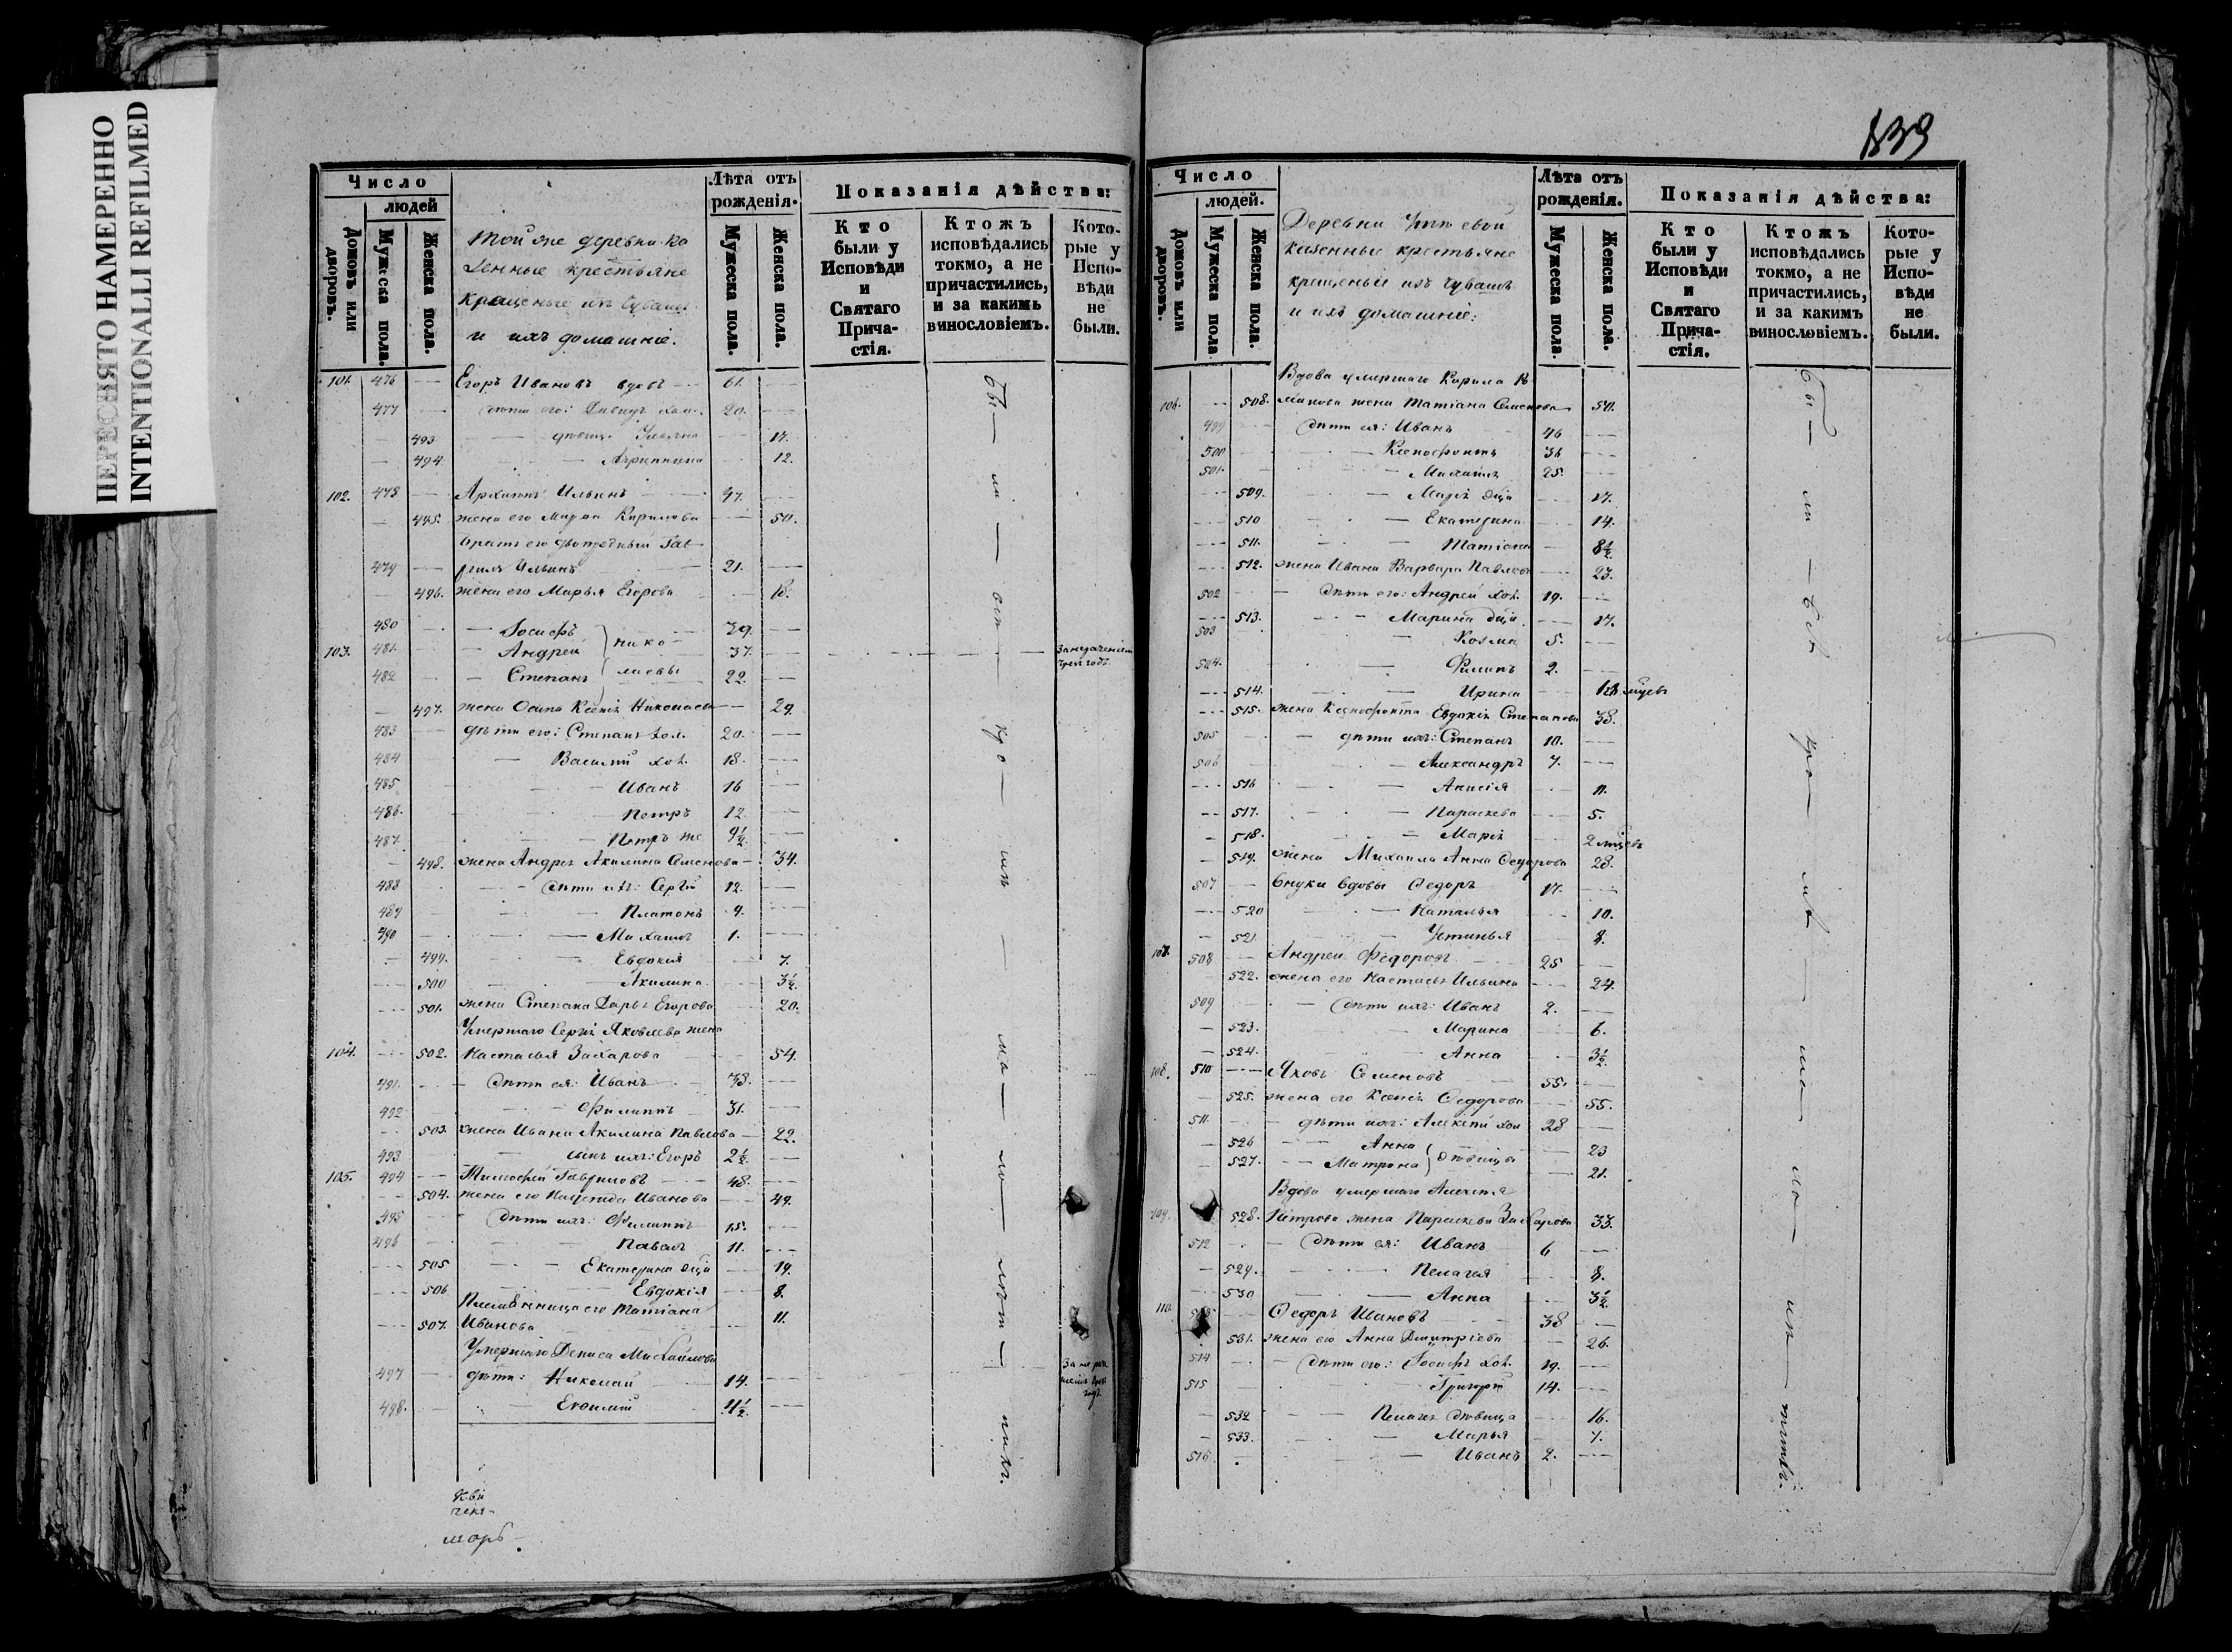 ПЕРЕСНЯТО НАМЕРЕННО
INTENTIONALLI REFILMED
Число
людей
Домовъ или дворовъ.
Мужеска пола.
Женска пола.
Той же деревни ка
зенные крестьяне
крещеные изъ Чувашъ
и ихъ домашніе.
Лѣта отъ рожденія.
Мужеска пола.
Женска пола.
Показанія дѣйства:
Кто были у Исповѣди и Святаго Причастія.
Ктожъ исповѣдались токмо, а не причастились, и за какимъ винословіемъ.
Которые у Исповѣди не были.
101. 476 Егоръ Ивановъ вдовъ 61.
477 дѣти его: 20.
493 14.
494 12.
102. 478 Архипъ Ильинъ 47.
495. жена его Марѳа Кирилова 50.
братъ его двоюродный Гав
479 рилъ Ильинъ 21.
496. жена его Марья Егорова 18.
480 Іосифъ 39.
103. 481. Андрей нико 37.
482 Степанъ лаевы 22.
497. жена Осипа Ксенія Николаева 29.
483 дѣти его: Степанъ хол. 20.
484 Василій хол. 18.
485 Иванъ 16
486. Петръ 12
487. Петръ же 9½
498. жена Андрея Акилина Семенова 34.
488 дѣти ихъ: Сергій 12.
489 Платонъ 9.
490 Михаилъ 1.
499. Евдокія 7.
500 Акилина 3½.
501. жена Степана Дарья Егорова 20.
Умершаго Сергія Яковлева жена
104. 502. Настасья Захарова 54.
491. дѣти ея: Иванъ 38.
492 Филиппъ 31.
503. жена Ивана Акилина Павлова 22.
493 сынъ ихъ: Егоръ 2½.
105. 494 Тимофей Гавриловъ 48.
504. жена его Ивanова 49.
495 дѣти ихъ: Филиппъ 15.
496 Павелъ 11.
505 Екатерина дѣца 19.
506 Евдокія 8.
Племянница его Татіана
507. Иванова 11.
Умершаго Дениса Михайлова
497 дѣти: Николай 14.
498. 11½.
139
Число
людей.
Домовъ или дворовъ.
Мужеска пола
Женска пола.
Деревни
казенные крестьяне
крещеные изъ Чувашъ
и ихъ домашніе:
Лѣта отъ рожденія.
Мужеска пола.
Женска пола.
Показанія дѣйства:
Кто были у Исповѣди и Святаго Причастія.
Ктожъ исповѣдались токмо, а не причастились, и за какимъ винословіемъ.
Которые у Исповѣди не были.
Вдова умершаго Кирила
106. 508. жена Татіана Семенова 50.
499 Дѣти ея: Иванъ 46
500 Ксенофонтъ 36
501. Михаилъ 25.
509. Марія дѣца 17.
510 Екатерина 14.
511. Татіана 8½.
512. жена Ивана Варвара Павлова 23.
502 дѣти его: Андрей хол. 19.
513. Марина дѣца 17.
503 Козма 5.
504. Филипъ 2.
514. Ирина
515. жена Ксенофонта Евдокія Степанова 38.
505 дѣти ихъ: Степанъ 10.
506 Александръ 7.
516 Анисія 11.
517. Параскева 5.
518. Марія 2
519. жена Михаила Анна Федорова 28.
507 внуки вдовы Федоръ 17.
520 Наталья 10.
521. Устинья 8.
107. 508 Андрей Федоровъ 25
522. жена его Настасья Ильина 24.
509 дѣти ихъ: Иванъ 2.
523. Марина 6.
524. Анна 3½.
108. 510 Яковъ Семеновъ 55.
525. жена его Ксенія Федорова 55.
511. дѣти ихъ: Алексѣй хол 28
526 Анна 23
527. Матрона дѣвицы 21.
Вдова умершаго
109. 528. Петрова жена Параскева Захарова 33.
512 дѣти ея: Иванъ 6
529. Пелагея 8.
530 Анна 3½.
110. Федоръ Ивановъ 38
531. жена его Анна Дмитріева 26.
514 дѣти его: Іосифъ хол. 19.
515 Григорій 14.
532 Пелагея дѣвица 16.
533. Марья 7.
516 Иванъ 2.